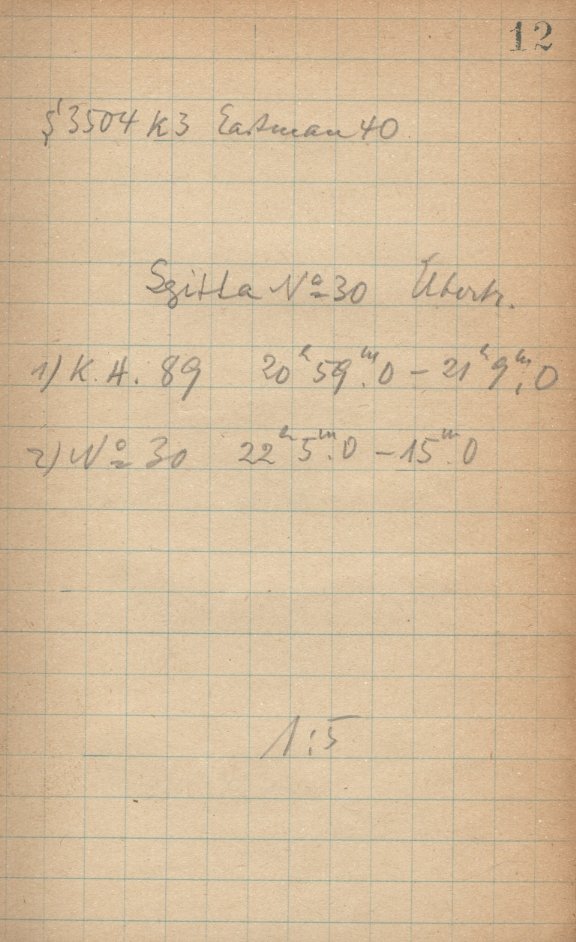 12
S 3504 K3 Eastman 40
Sgitta № 30 Übertr.
1) K. A. 89 20ʰ 59ᵐ.0 – 21ʰ 9ᵐ.0
2) № 30 22ʰ 5ᵐ.0 – 15ᵐ.0
1:5